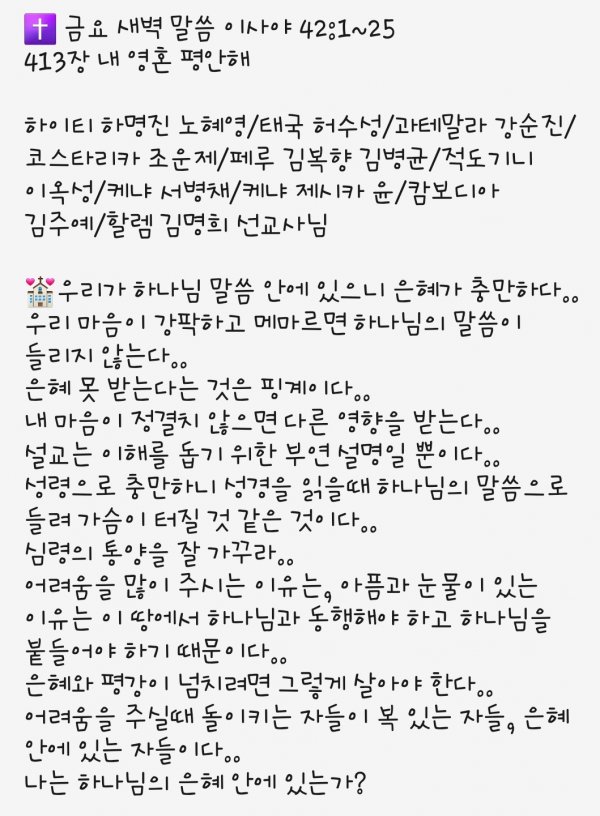 ✝️ 금요 새벽 말씀 이사야 42:1~25
413장 내 영혼 평안해
하이티 하명진 노혜영/태국 허수성/과테말라 강순진/
코스타리카 조운제/페루 김복향 김병균/적도기니
이옥성/케냐 서병채/케냐 제시카 윤/캄보디아
김주예/할렘 김명희 선교사님
💒우리가 하나님 말씀 안에 있으니 은혜가 충만하다..
우리 마음이 강팍하고 메마르면 하나님의 말씀이
들리지 않는다..
은혜 못 받는다는 것은 핑계이다..
내 마음이 정결치 않으면 다른 영향을 받는다..
설교는 이해를 돕기 위한 부연 설명일 뿐이다..
성령으로 충만하니 성경을 읽을때 하나님의 말씀으로
들려 가슴이 터질 것 같은 것이다..
심령의 통양을 잘 가꾸라..
어려움을 많이 주시는 이유는, 아픔과 눈물이 있는
이유는 이 땅에서 하나님과 동행해야 하고 하나님을
붙들어야 하기 때문이다..
은혜와 평강이 넘치려면 그렇게 살아야 한다..
어려움을 주실때 돌이키는 자들이 복 있는 자들, 은혜
안에 있는 자들이다..
나는 하나님의 은혜 안에 있는가?